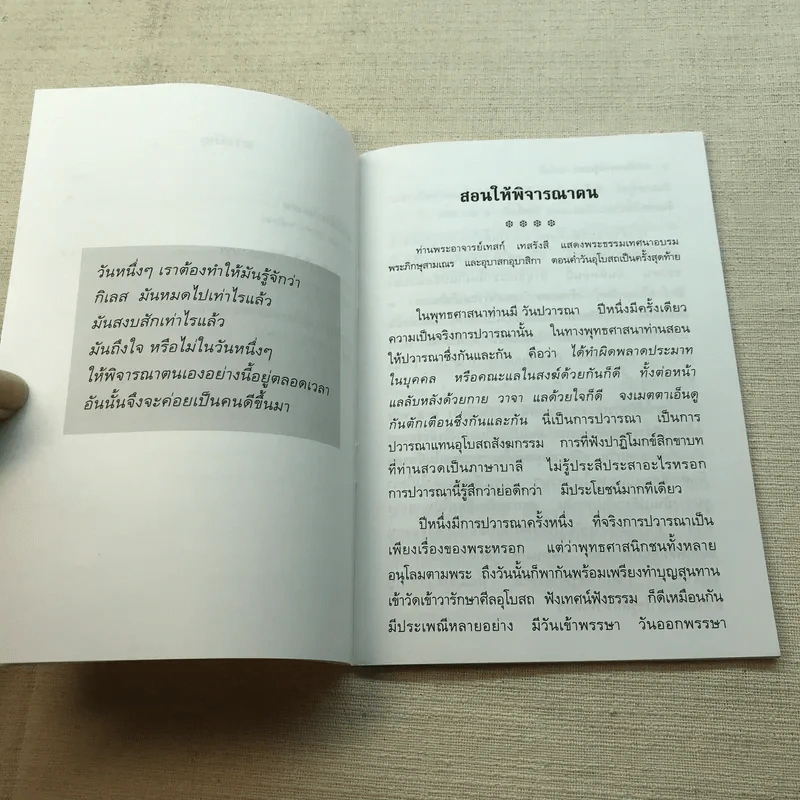 วันหนึ่งๆ เราต้องทำให้มันรู้จักว่า
กิเลส มันหมดไปเท่าไรแล้ว
มันสงบสักเท่าไรแล้ว
มันถึงใจ หรือไม่ในวันหนึ่งๆ
ให้พิจารณาตนเองอย่างนี้อยู่ตลอดเวลา
อันนั้นจึงจะค่อยเป็นคนดีขึ้นมา
สอนให้พิจารณาตน
ท่านพระอาจารย์เทสก์ เทสรังสี แสดงพระธรรมเทศนาอบรม
พระภิกษุสามเณร และอุบาสกอุบาสิกา ตอนค่ำวันอุโบสถเป็นครั้งสุดท้าย
ในพุทธศาสนาท่านมี วันปวารณา ปีหนึ่งมีครั้งเดียว
ความเป็นจริงการปวารณานั้น ในทางพุทธศาสนาท่านสอน
ให้ปวารณาซึ่งกันและกัน คือว่า ได้ทำผิดพลาดประมาท
ในบุคคล หรือคณะแลในสงฆ์ด้วยกันก็ดี ทั้งต่อหน้า
แลลับหลังด้วยกาย วาจา แลด้วยใจก็ดี จงเมตตาเอ็นดู
กันตักเตือนซึ่งกันและกัน นี่เป็นการปวารณา เป็นการ
ปวารณาแทนอุโบสถสังฆกรรม การที่ฟังปาฏิโมกข์สิกขาบท
ที่ท่านสวดเป็นภาษาบาลี ไม่รู้ประสีประสาอะไรหรอก
การปวารณานี้รู้สึกว่าย่อดีกว่า มีประโยชน์มากทีเดียว
ปีหนึ่งมีการปวารณาครั้งหนึ่ง ที่จริงการปวารณาเป็น
เพียงเรื่องของพระหรอก แต่ว่าพุทธศาสนิกชนทั้งหลาย
อนุโลมตามพระ ถึงวันนั้นก็พากันพร้อมเพรียงทำบุญสุนทาน
เข้าวัดเข้าวารักษาศีลอุโบสถ ฟังเทศน์ฟังธรรม ก็ดีเหมือนกัน
มีประเพณีหลายอย่าง มีวันเข้าพรรษา วันออกพรรษา